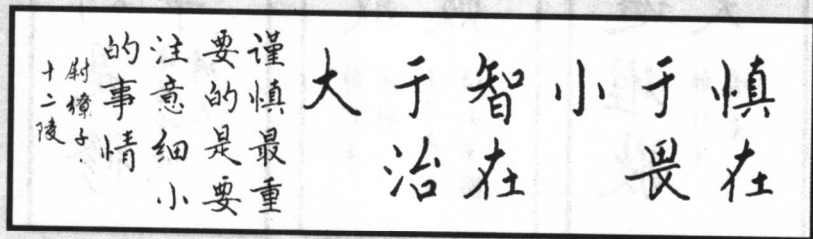 慎在
于畏
小
智在
于治
大
谨慎最重
要的是要
注意细小
的事情
尉缭子·
十二陵